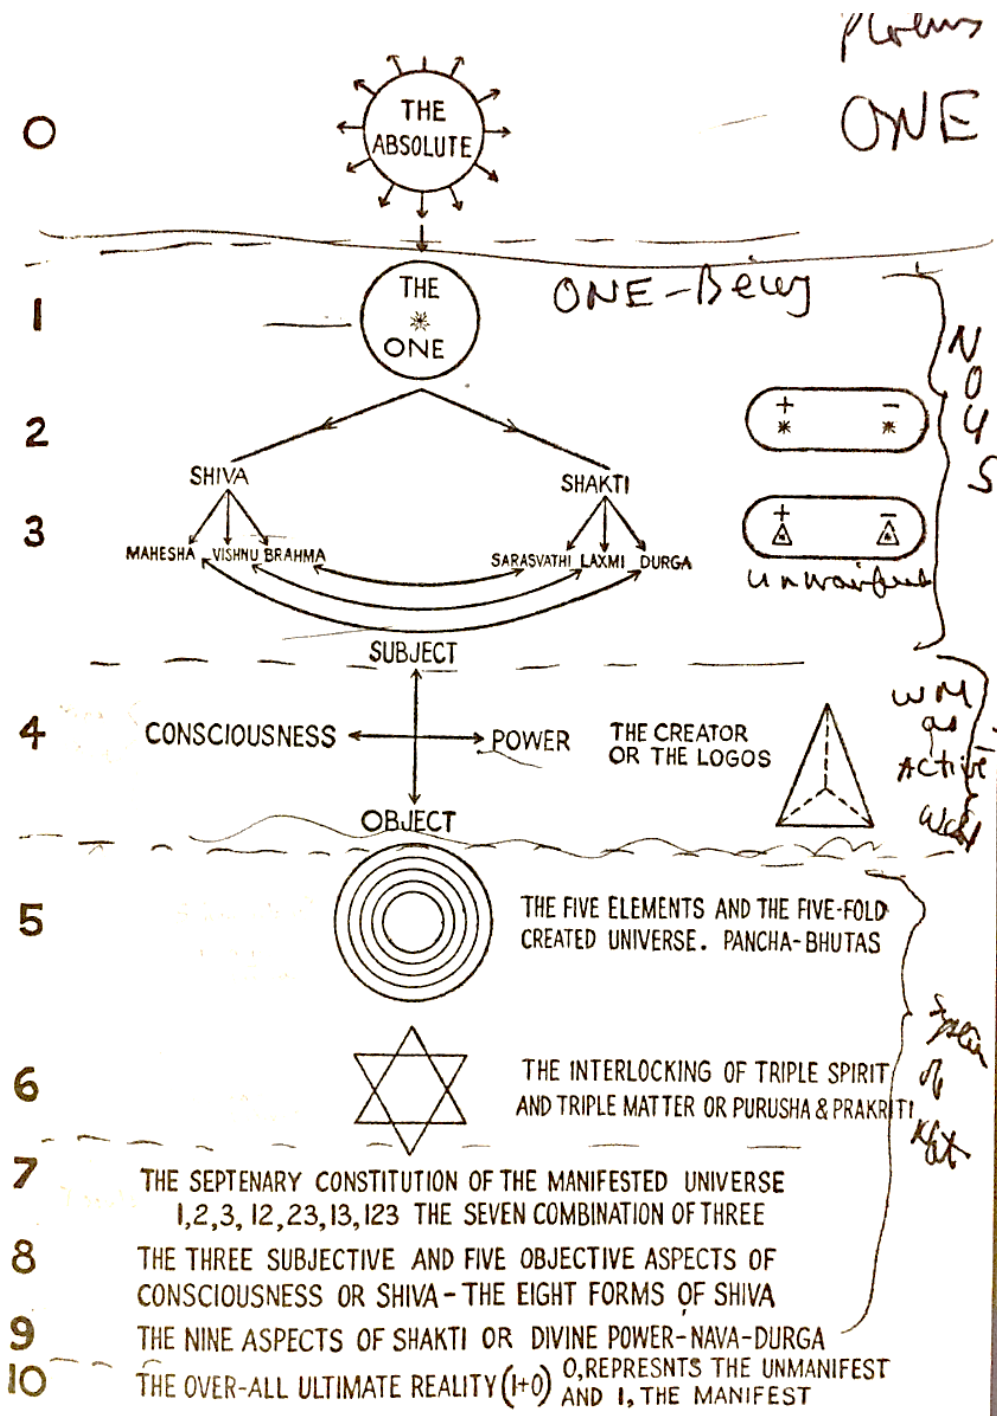 ONE
0
THE
ABSOLUTE
1
THE
ONE
ONE-Being
NOUS
2
+ −
SHIVA
SHAKTI
3
+ −
MAHESHA VISHNU BRAHMA
SARASVATHI LAXMI DURGA
SUBJECT
4
CONSCIOUSNESS
POWER
THE CREATOR
OR THE LOGOS
WM
as
Active
OBJECT
5
THE FIVE ELEMENTS AND THE FIVE-FOLD
CREATED UNIVERSE. PANCHA-BHUTAS
6
THE INTERLOCKING OF TRIPLE SPIRIT
AND TRIPLE MATTER OR PURUSHA & PRAKRITI
of
7
THE SEPTENARY CONSTITUTION OF THE MANIFESTED UNIVERSE
1,2,3, 12,23,13,123 THE SEVEN COMBINATION OF THREE
8
THE THREE SUBJECTIVE AND FIVE OBJECTIVE ASPECTS OF
CONSCIOUSNESS OR SHIVA-THE EIGHT FORMS OF SHIVA
9
THE NINE ASPECTS OF SHAKTI OR DIVINE POWER-NAVA-DURGA
10
THE OVER-ALL ULTIMATE REALITY (1+0) 0, REPRESNTS THE UNMANIFEST
AND 1, THE MANIFEST